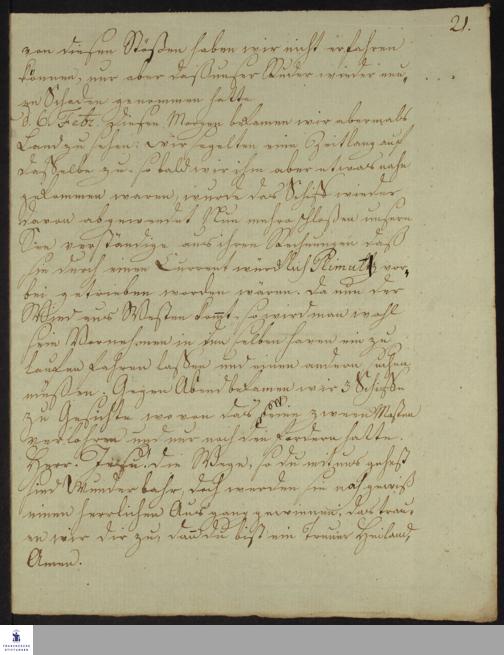 21.
von diesen Stößen haben wir nicht erfahren
können, nur aber daß unser Ruder wieder neu-
en Schaden genommen hatte.
d. 6. Febr. Diesen Morgen bekamen wir abermals
Land zu sehen: wir segelten eine Zeitlang auf
dasselbe zu. so bald wir ihm aber etwas nahe
gekommen waren, wurde das Schiff wieder
davon abgewendet. Nun schloßen unsere
See verständige aus ihren Rechnungen daß
sie durch einen Current würdlich Plimuth vor-
bei getrieben worden wären. Da nun der
Wind aus Westen kommt, so wird man wohl
sein Vornehmen in den selben haven ein zu
laufen fahren lassen und einen andern suchen
müßen. Gegen Abend bekamen wir 3 Schiffe
zu Gesichte wovon das eine zween Masten
verlohren und nur noch den fordern hatte.
Herr Jesu, die Wege, so du mit uns gehest
sind Wunderbahr, doch werden sie noch gewiß
einen herrlichen Ausgang gewinnen; das trau-
en wir dir zu, dann du bist ein Treuer Heiland,
Amen.
FRANCKESCHE
STIFTUNGEN